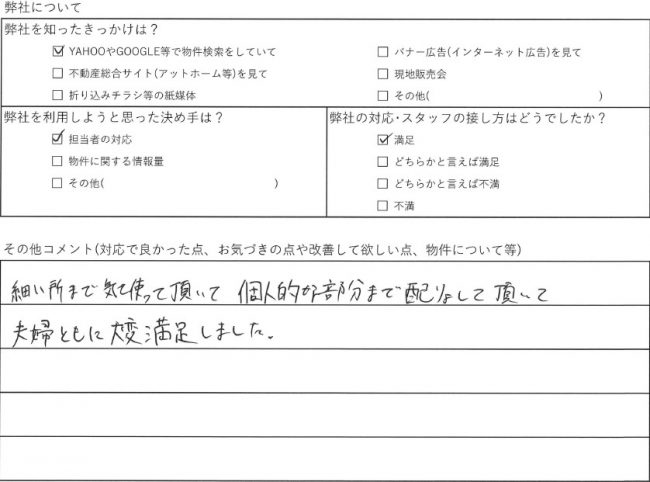 弊社について
弊社を知ったきっかけは?
☑ YAHOOやGOOGLE等で物件検索をしていて
□ バナー広告(インターネット広告)を見て
□ 不動産総合サイト(アットホーム等)を見て
□ 現地販売会
□ 折り込みチラシ等の紙媒体
□ その他( )
弊社を利用しようと思った決め手は?
☑ 担当者の対応
□ 物件に関する情報量
□ その他( )
弊社の対応・スタッフの接し方はどうでしたか?
☑ 満足
□ どちらかと言えば満足
□ どちらかと言えば不満
□ 不満
その他コメント(対応で良かった点、お気づきの点や改善して欲しい点、物件について等)
細い所まで気を使って頂いて 個人的な部分まで配りょして頂いて
夫婦ともに大変満足しました。